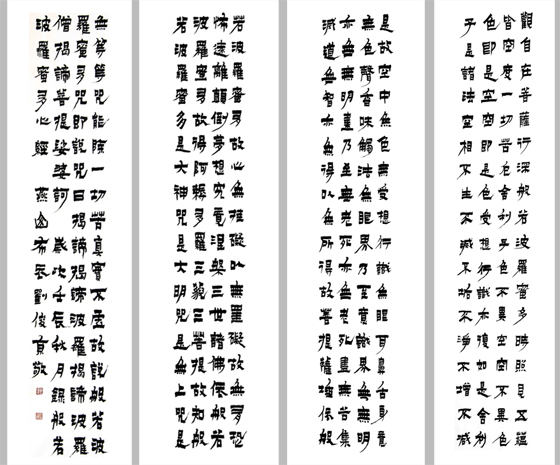 觀自在菩薩行深般若波羅蜜多時照見五蘊
皆空度一切苦厄舍利子色不異空空不異色
色即是空空即是色受想行識亦復如是舍利
子是諸法空相不生不滅不垢不淨不增不減
是故空中無色無受想行識無眼耳鼻舌身意
無色聲香味觸法無眼界乃至意識界無無明
亦無無明盡乃至無老死亦無老死盡無苦集
滅道無智亦無得以無所得故菩提薩埵依般
若波羅蜜多故心無罣礙以無罣礙故無有恐
怖遠離顛倒夢想究竟涅槃三世諸佛依般若
波羅蜜多故得阿耨多羅三藐三菩提故知般
若波羅蜜多是大神咒是大明咒是無上咒是
無等等咒能除一切苦真實不虛故說般若波
羅蜜多咒即說咒曰揭諦揭諦波羅揭諦波羅
僧揭諦菩提娑婆訶 歲次壬辰秋月錄般若
波羅蜜多心經 燕山布衣劉俊貢敬